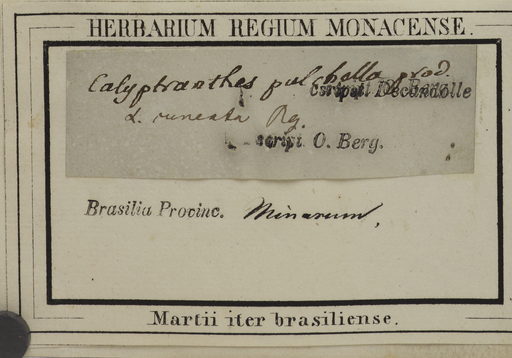 HERBARIUM REGIUM MONACENSE.
Calyptranthes pulchella prod.
scripsit Decandolle
α. cuneata Bg.
scrips. O. Berg.
Brasilia Provinc. Minarum,
Martii iter brasiliense.